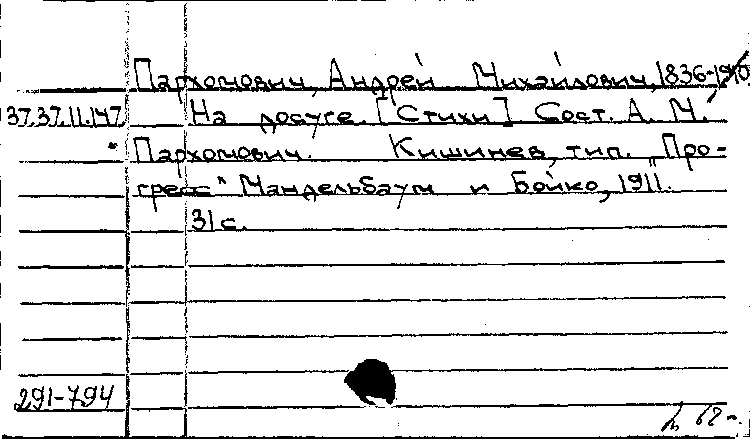 Пархомович, Андрей Михайлович, 1836-1910
37.37.11.147 На досуге. [Стихи] Сост. А. М.
Пархомович. Кишинев, тип. „Про-
гресс“ Мандельбаум и Бойко, 1911.
31 с.
291-794